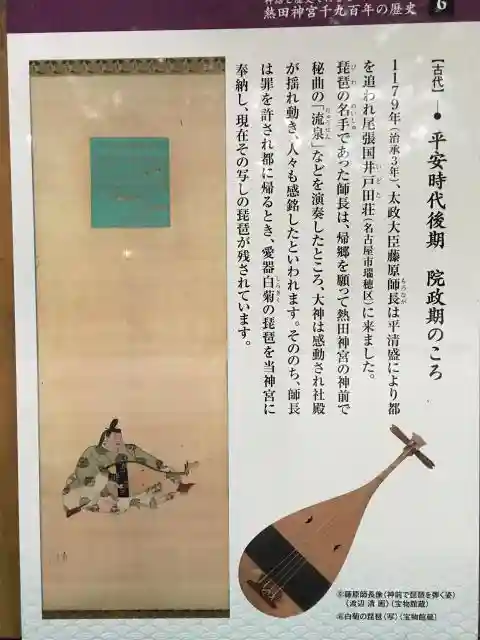 熱田神宮千九百年の歴史
6
【古代】─● 平安時代後期 院政期のころ
1179年(治承3年)、太政大臣藤原師長は平清盛により都
を追われ尾張国井戸田荘(名古屋市瑞穂区)に来ました。
琵琶の名手であった師長は、帰郷を願って熱田神宮の神前で
秘曲の「流泉」などを演奏したところ、大神は感動され社殿
が揺れ動き、人々も感銘したといわれます。そののち、師長
は罪を許され都に帰るとき、愛器白菊の琵琶を当神宮に
奉納し、現在その写しの琵琶が残されています。
藤原師長像(神前で琵琶を弾く姿)
(渡辺 清 画)(宝物館蔵)
白菊の琵琶(写)(宝物館蔵)